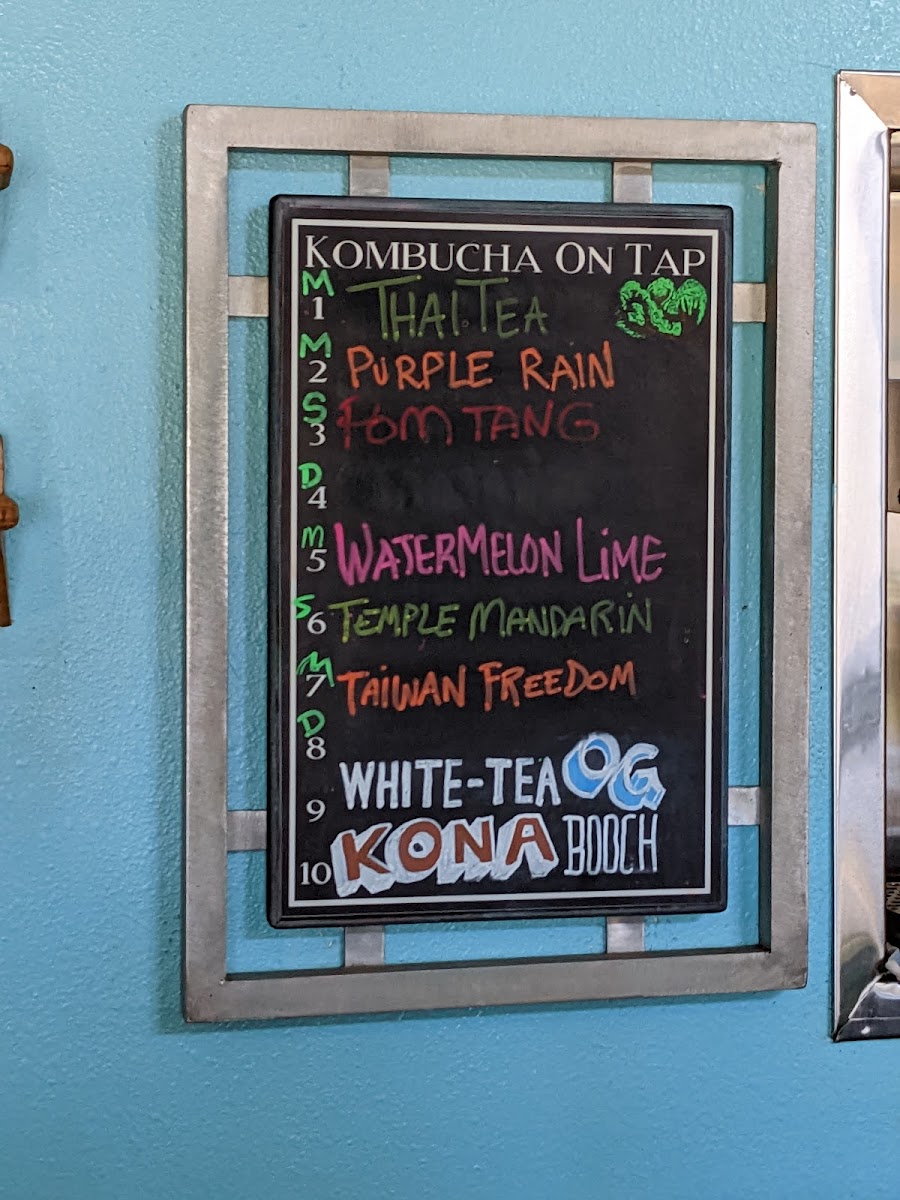 KOMBUCHA ON TAP
M
1 THAI TEA
M
2 PURPLE RAIN
S
3 POM TANG
D
4
M
5 WATERMELON LIME
S
6 TEMPLE MANDARIN
M
7 TAIWAN FREEDOM
D
8
9 WHITE-TEA OG
10 KONA BOOCH